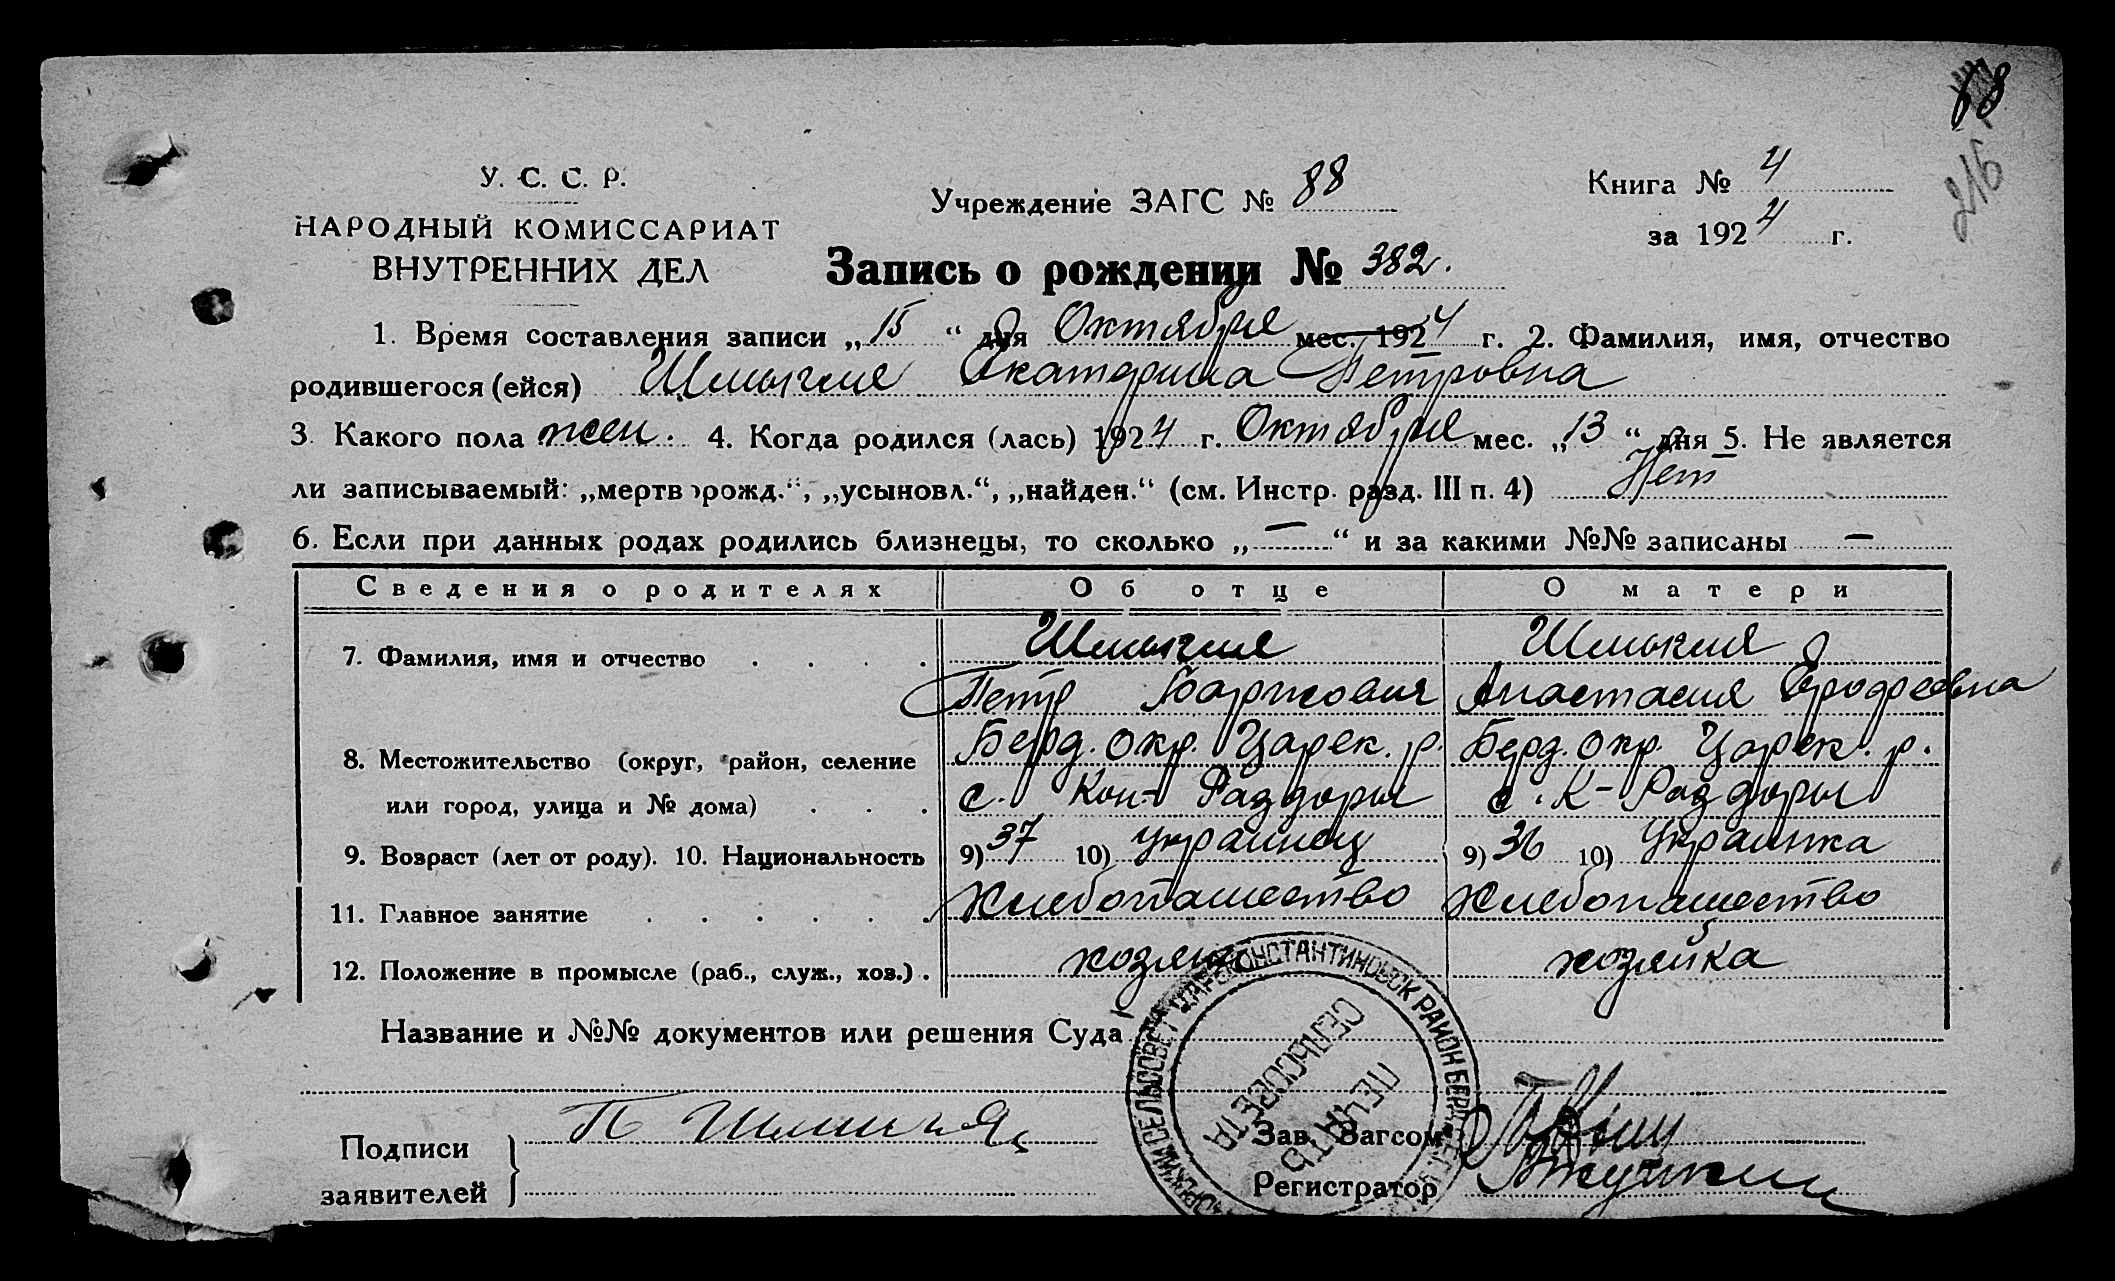 88
216
У. С. С. Р.
НАРОДНЫЙ КОМИССАРИАТ
ВНУТРЕННИХ ДЕЛ
Учреждение ЗАГС № 88
Книга № 4
за 1924 г.
Запись о рождении № 382.
1. Время составления записи „15“ дня Октября мес. 1924 г. 2. Фамилия, имя, отчество
родившегося (ейся) Екатерина Петровна
3. Какого пола жен. 4. Когда родился (лась) 1924 г. Октября мес. „13“ дня 5. Не является
ли записываемый: „мертворожд.“, „усыновл.“, „найден.“ (см. Инстр. разд. III п. 4) Нет
6. Если при данных родах родились близнецы, то сколько „—“ и за какими №№ записаны —
Сведения о родителях Об отце О матери
7. Фамилия, имя и отчество . . . .
Петр Анастасия
Берд. окр. Царек. р. Берд. окр. Царек. р.
8. Местожительство (округ, район, селение
или город, улица и № дома) . . . с. Кон-Раздоры с. К-Раздоры
9. Возраст (лет от роду). 10. Национальность 9) 37 10) украинец 9) 36 10) Украинка
11. Главное занятие . . . . . . Хлебопашество Хлебопашество
12. Положение в промысле (раб., служ., хоз.) . хозяин хозяйка
Название и №№ документов или решения Суда
Подписи
заявителей
Зав. Загсом
Регистратор
СЕЛЬСОВЕТ ЦАРЕКОНСТАНТИНОВСК РАЙОН
ПЕЧАТЬ
СЕЛЬСОВЕТА